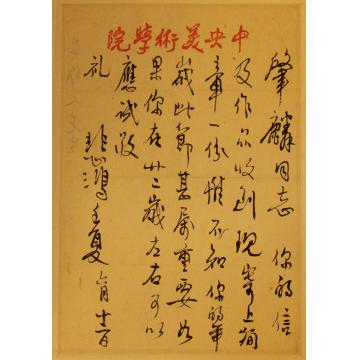 中央美術學院
肇麟同志 你的信
及作品收到 現寄上簡
章一份 惟不知你的年
歲 此節甚屬重要 如
果你在廿二歲左右 可以
應試 致
礼
悲鴻